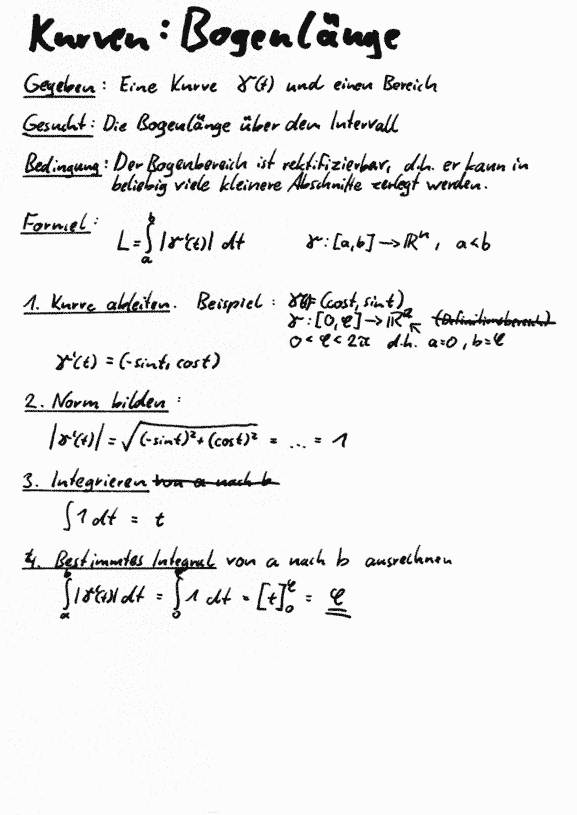 Kurven: Bogenlänge
Gegeben: Eine Kurve γ(t) und einen Bereich
Gesucht: Die Bogenlänge über dem Intervall
Bedingung: Der Bogenbereich ist rektifizierbar, d.h. er kann in
beliebig viele kleinere Abschnitte zerlegt werden.
Formel: L = ∫_a^b |γ'(t)| dt γ: [a,b] → ℝⁿ, a<b
1. Kurve ableiten. Beispiel: γ(t)= (cost, sint)
γ: [0,φ] → ℝ² (Definitionsbereich)
0 < φ < 2π d.h. a=0, b=φ
γ'(t) = (-sint, cost)
2. Norm bilden:
|γ'(t)| = √((-sint)² + (cost)²) = ... = 1
3. Integrieren von a nach b
∫ 1 dt = t
4. Bestimmtes Integral von a nach b ausrechnen
∫_a^b |γ'(t)| dt = ∫_0^φ 1 dt = [t]_0^φ = φ